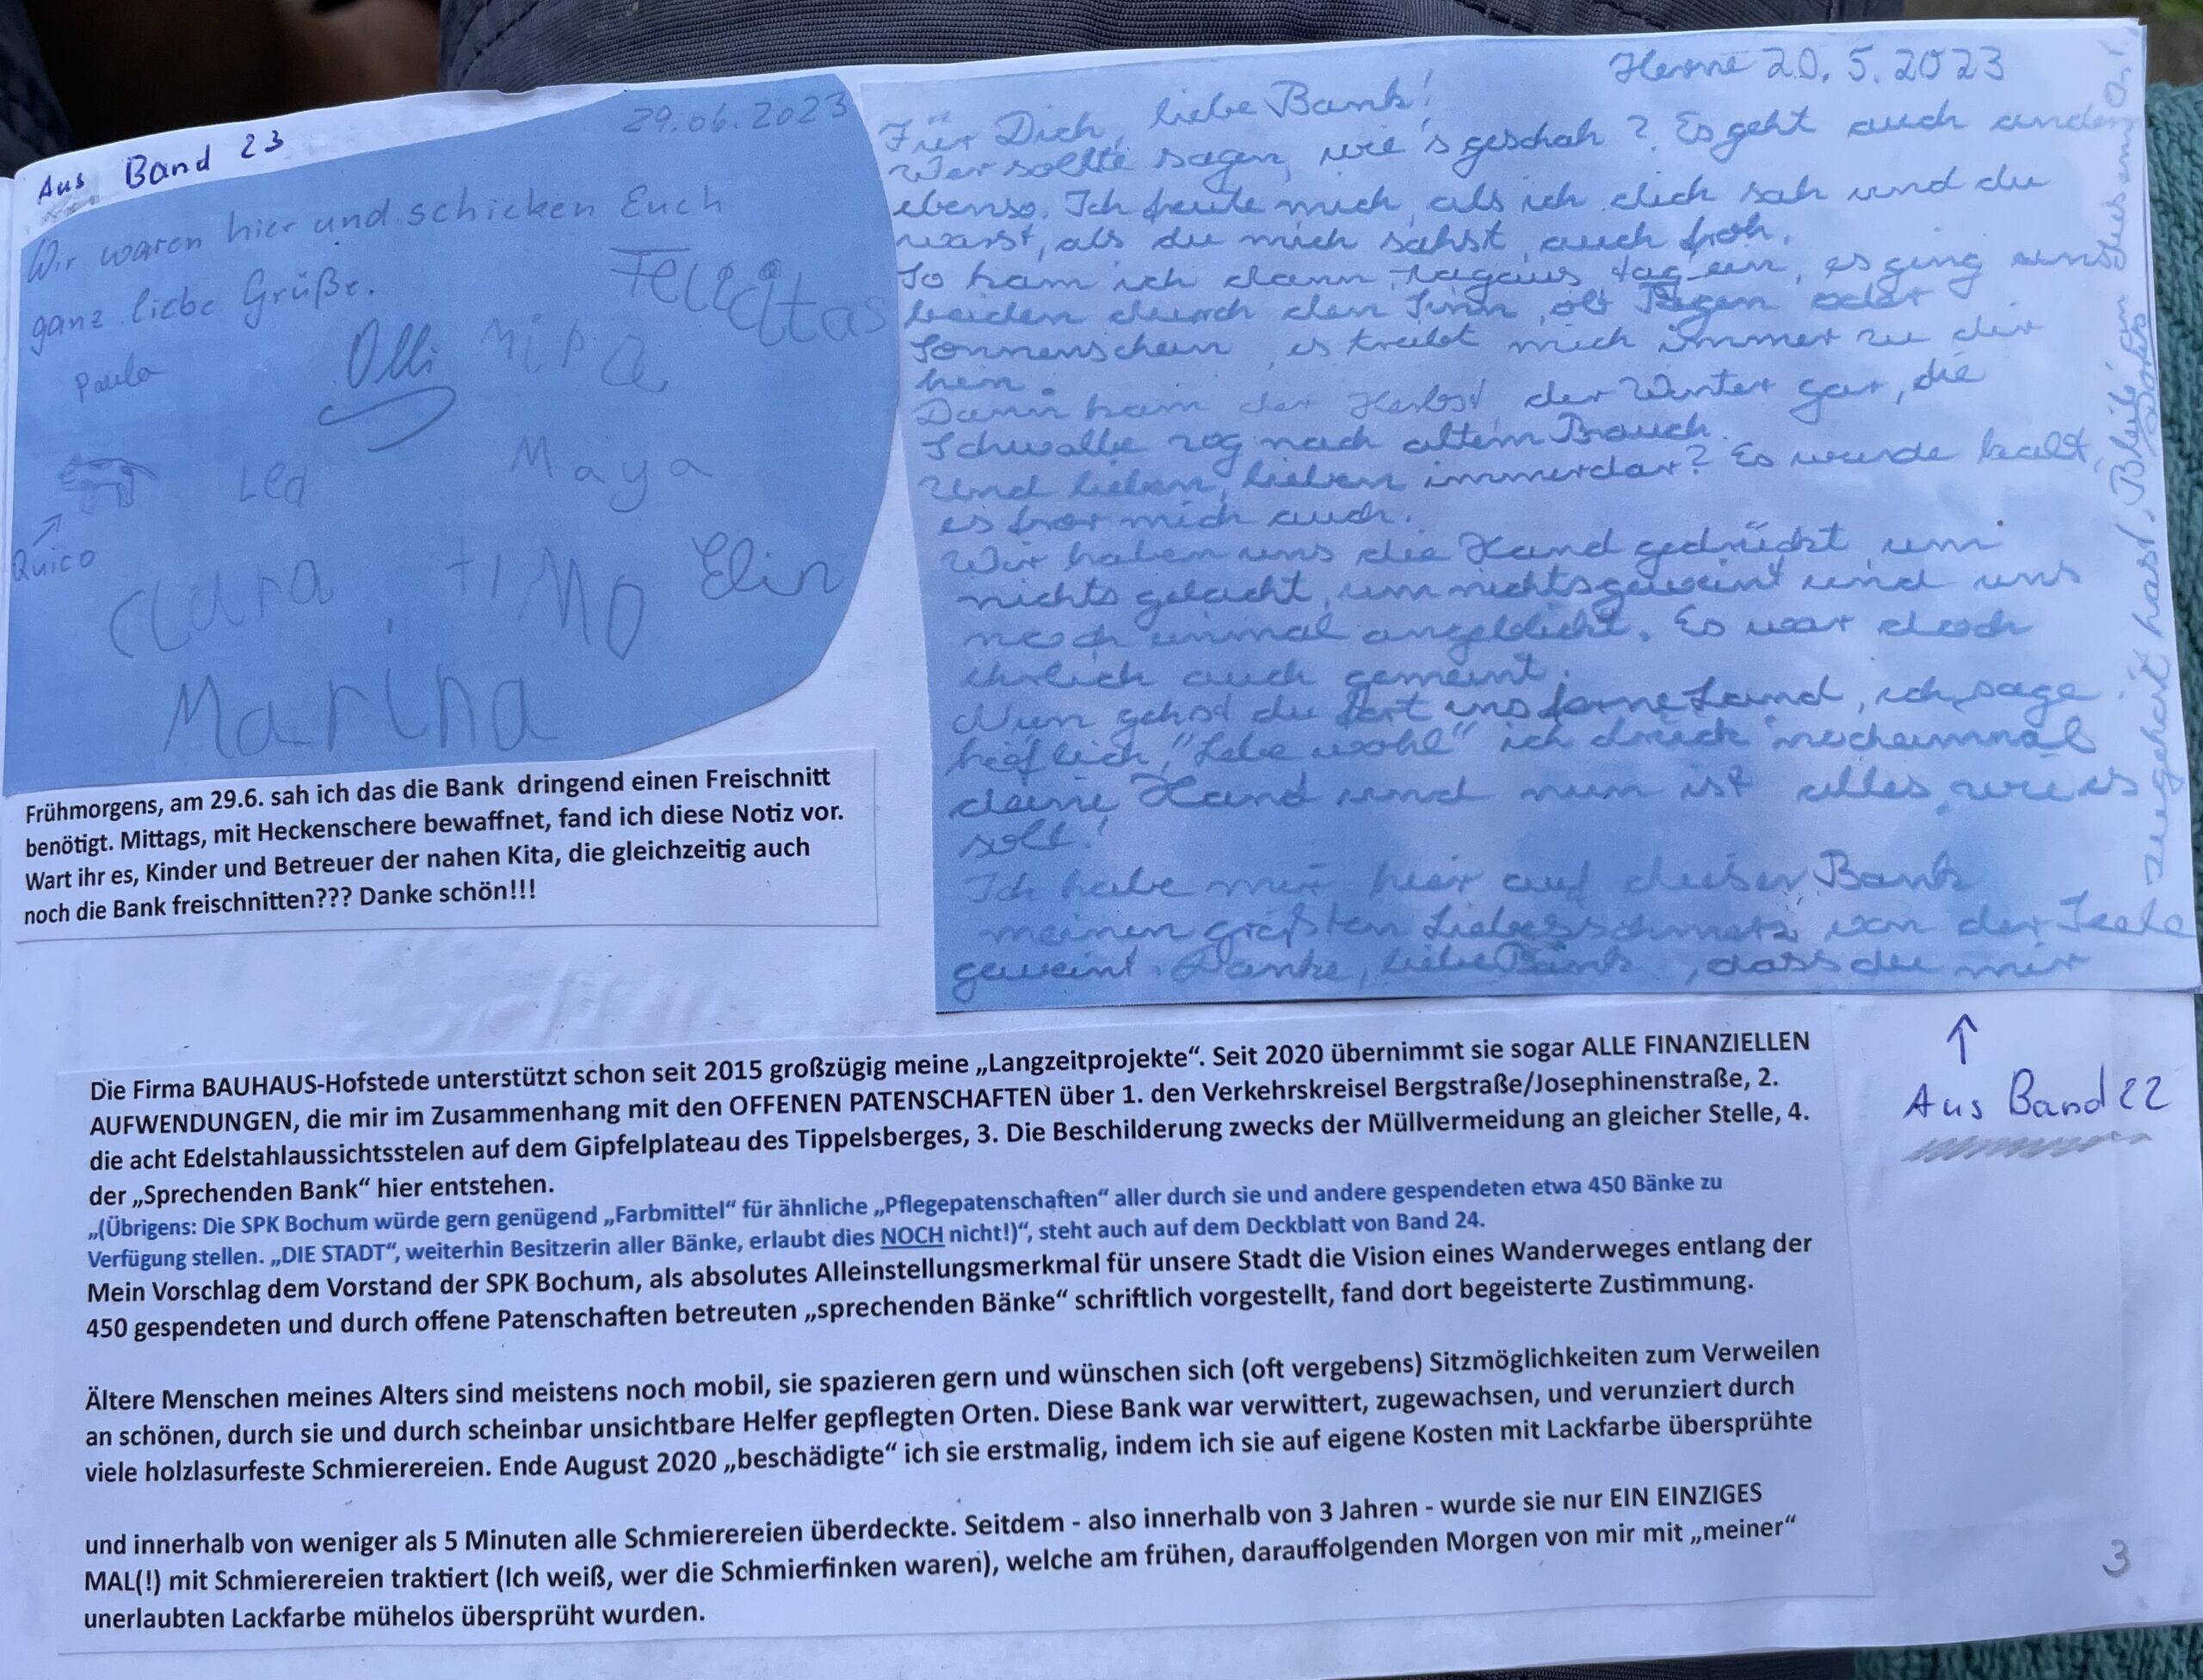 Aus Band 23
29.06.2023
Wir waren hier und schicken Euch
ganz liebe Grüße.
Felicitas
Paula
Olli
Mira
Leo
Maya
Quico
Clara
timo
Elin
Marina
Frühmorgens, am 29.6. sah ich das die Bank dringend einen Freischnitt
benötigt. Mittags, mit Heckenschere bewaffnet, fand ich diese Notiz vor.
Wart ihr es, Kinder und Betreuer der nahen Kita, die gleichzeitig auch
noch die Bank freischnitten??? Danke schön!!!
Herne 20.5.2023
Für Dich, liebe Bank!
Wer sollte sagen, wie's geschah? Es geht auch
ebenso. Ich freute mich, als ich dich sah und du
warst, als du mich sahst, auch froh.
So kam ich dann tagaus tag ein, es ging uns
beiden durch den Sinn, ob Regen oder
Sonnenschein, es treibt mich immer zu dir
hin.
Dann kam der Herbst, der Winter gar, die
Schwalbe zog nach altem Brauch.
Und lieben, lieben immerdar? Es wurde kalt,
es fror mich auch.
Wir haben uns die Hand gedrückt, um
nichts gelacht, um nichts geweint und uns
noch einmal angeblickt. Es war doch
ehrlich auch gemeint.
Nun gehst du fort ins ferne Land, ich sage
höflich, "Lebe wohl" ich drück nocheinmal
deine Hand und nun ist alles, wie es
soll!
Ich habe mir hier auf dieser Bank
meinen größten Liebesschmerz von der Seele
geweint. Danke, liebe Bank, dass du mir
zugehört hast. Bleib'
↑
Aus Band 22
Die Firma BAUHAUS-Hofstede unterstützt schon seit 2015 großzügig meine „Langzeitprojekte“. Seit 2020 übernimmt sie sogar ALLE FINANZIELLEN
AUFWENDUNGEN, die mir im Zusammenhang mit den OFFENEN PATENSCHAFTEN über 1. den Verkehrskreisel Bergstraße/Josephinenstraße, 2.
die acht Edelstahlaussichtsstelen auf dem Gipfelplateau des Tippelsberges, 3. Die Beschilderung zwecks der Müllvermeidung an gleicher Stelle, 4.
der „Sprechenden Bank“ hier entstehen.
„(Übrigens: Die SPK Bochum würde gern genügend „Farbmittel“ für ähnliche „Pflegepatenschaften“ aller durch sie und andere gespendeten etwa 450 Bänke zu
Verfügung stellen. „DIE STADT“, weiterhin Besitzerin aller Bänke, erlaubt dies NOCH nicht!)“, steht auch auf dem Deckblatt von Band 24.
Mein Vorschlag dem Vorstand der SPK Bochum, als absolutes Alleinstellungsmerkmal für unsere Stadt die Vision eines Wanderweges entlang der
450 gespendeten und durch offene Patenschaften betreuten „sprechenden Bänke“ schriftlich vorgestellt, fand dort begeisterte Zustimmung.
Ältere Menschen meines Alters sind meistens noch mobil, sie spazieren gern und wünschen sich (oft vergebens) Sitzmöglichkeiten zum Verweilen
an schönen, durch sie und durch scheinbar unsichtbare Helfer gepflegten Orten. Diese Bank war verwittert, zugewachsen, und verunziert durch
viele holzlasurfeste Schmierereien. Ende August 2020 „beschädigte“ ich sie erstmalig, indem ich sie auf eigene Kosten mit Lackfarbe übersprühte
und innerhalb von weniger als 5 Minuten alle Schmierereien überdeckte. Seitdem - also innerhalb von 3 Jahren - wurde sie nur EIN EINZIGES
MAL(!) mit Schmierereien traktiert (Ich weiß, wer die Schmierfinken waren), welche am frühen, darauffolgenden Morgen von mir mit „meiner“
unerlaubten Lackfarbe mühelos übersprüht wurden.
3